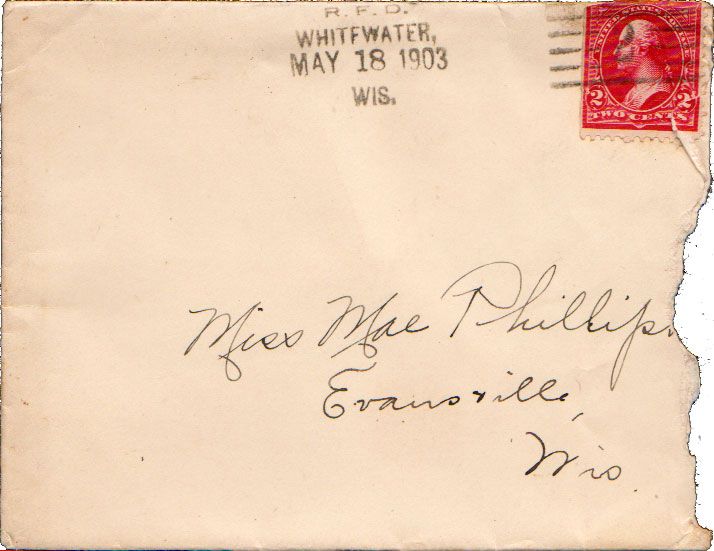 R. F. D.
WHITEWATER,
MAY 18 1903
WIS.
UNITED STATES POSTAGE
2 2
TWO CENTS
Miss Mae Phillips
Evansville,
Wis.